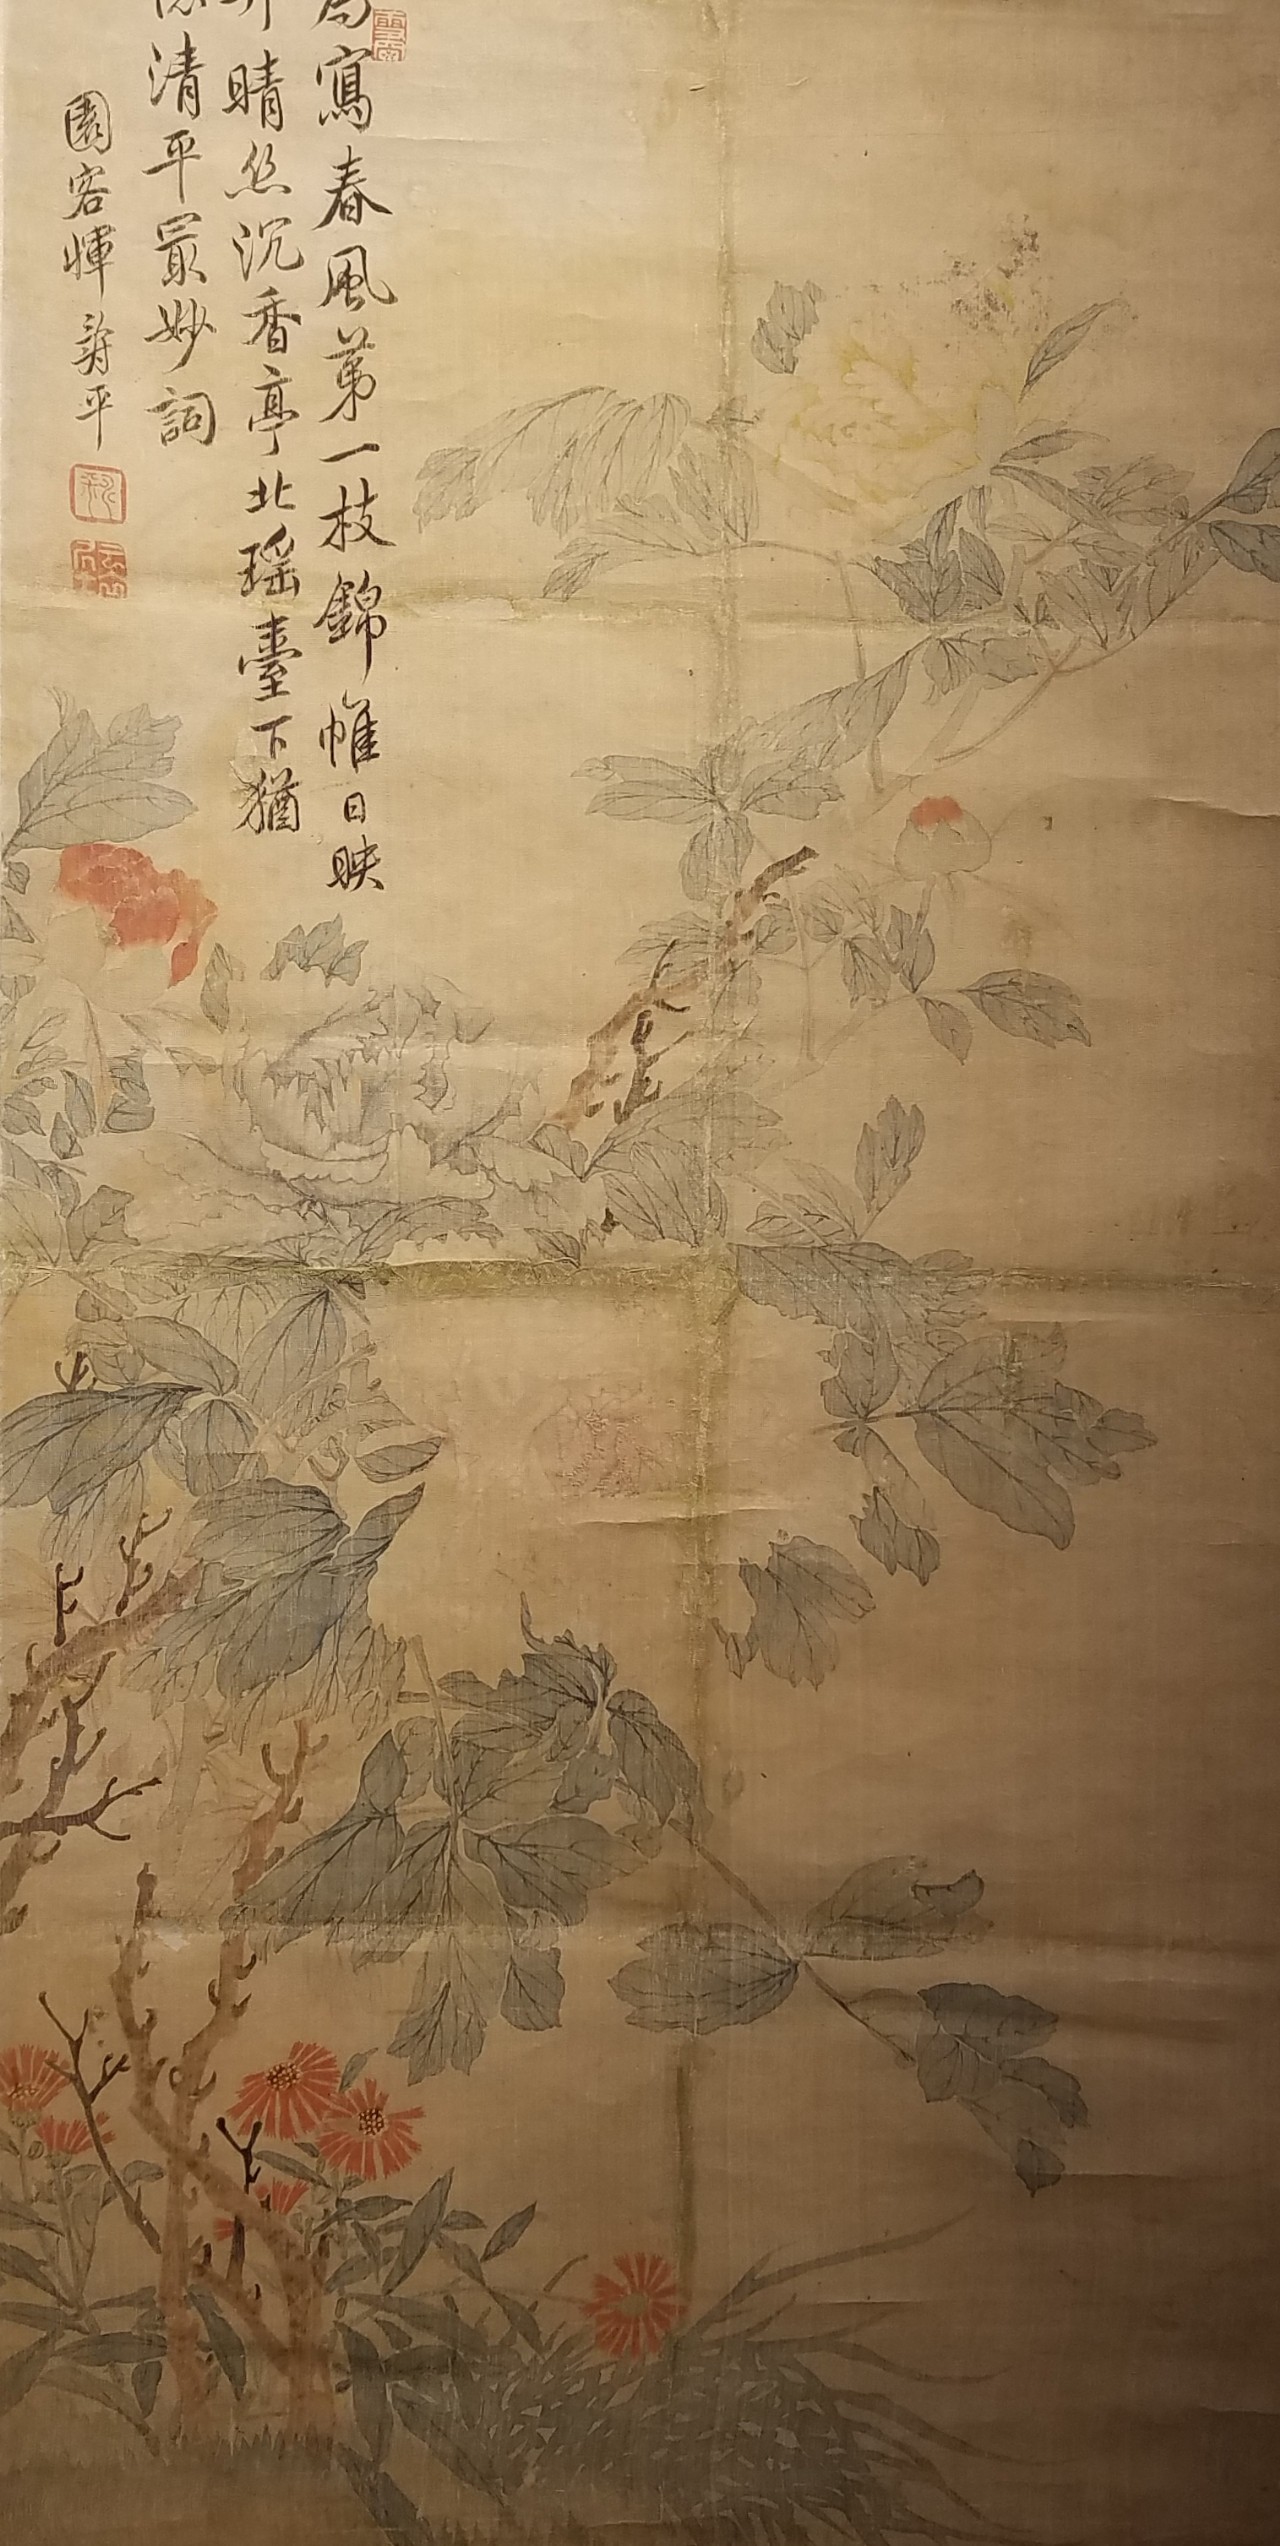 寫春風苐一枝錦帷日映
晴丝沉香亭北瑶臺下猶
清平㝡妙詞
園客惲壽平